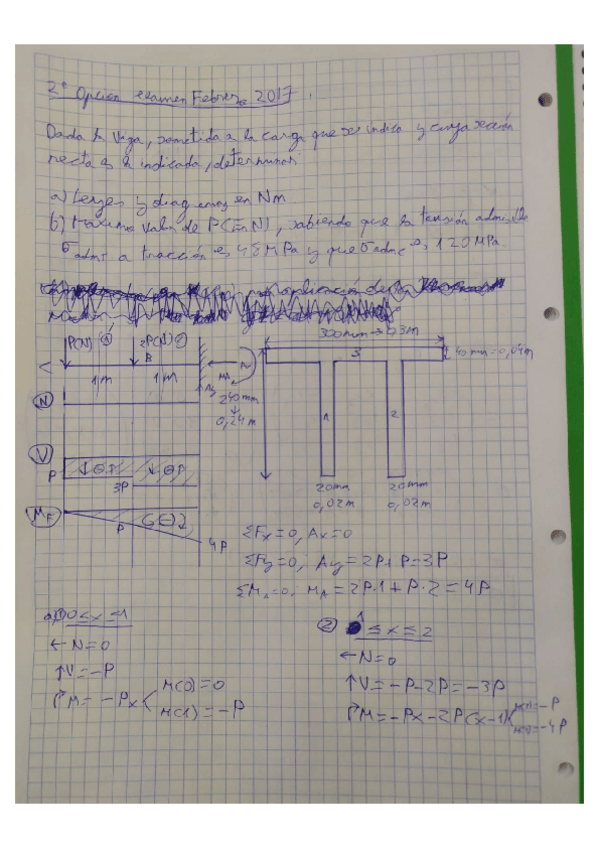 2ª Opción examen Febrero 2017.
Dada la viga, sometida a la carga que se indica y cuya sección
recta es la indicada, determinar
a) Leyes y diagramas en Nm.
b) Máximo valor de P (en N), sabiendo que la tensión admisible
σadmt a tracción es 48 MPa y que σadmc es 120 MPa.
P(N) ① 2P(N) ②
B
C
1m 1m
MA
Ay
300mm → 0,3m
3
40mm = 0,04m
240mm
0,24m
1 2
20mm 20mm
0,02m 0,02m
N
V
P
3P
MF
P
4P
ΣFx = 0, Ax = 0
ΣFy = 0, Ay = 2P + P = 3P
ΣMA = 0, MA = 2P·1 + P·2 = 4P
0 ≤ x ≤ 1
← N = 0
↑ V = -P
M = -Px
M(0) = 0
M(1) = -P
② 1 ≤ x ≤ 2
← N = 0
↑ V = -P - 2P = -3P
M = -Px - 2P(x-1)
= -P
= -4P